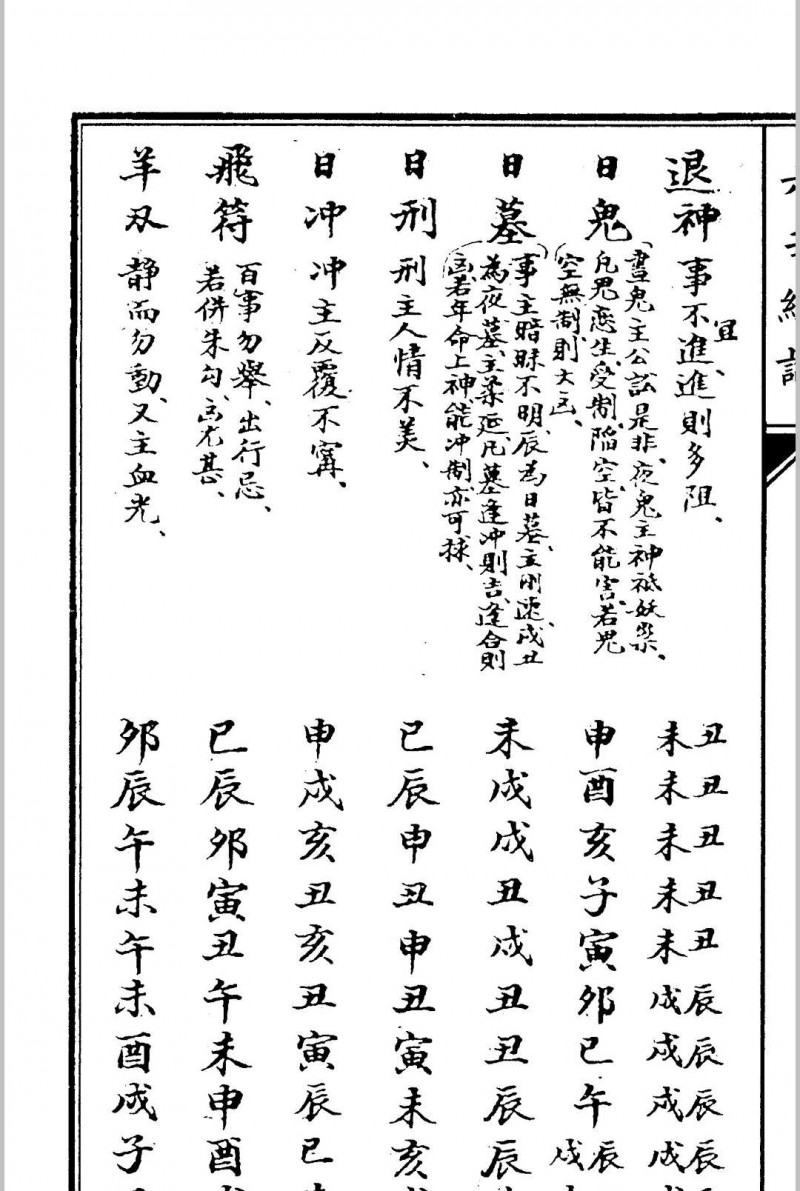 退神 事不宜進、進則多阻、
丑丑丑丑丑辰辰辰辰
未未未未未戌戌戌戌
日鬼
晝鬼主公訟是非、夜鬼主神祗妖祟、
凡鬼恋生、受制、陷空、皆不能害、若鬼
空無制、則大凶、
申酉亥子寅卯巳午辰戌
日墓
事主暗昧不明、辰為日墓、主刚速、戌丑
為夜墓、主柔延、凡墓逢冲則吉、逢合則
凶、若年命上神、能冲制、亦可捄、
未戌戌丑戌丑丑辰辰
日刑 刑主人情不美、
巳辰申丑申丑寅未亥
日冲 冲主反覆不寗、
申戌亥丑亥丑寅辰巳
飛符
百事勿舉、出行忌、
若併朱勾、凶尤甚、
巳辰卯寅丑午未申酉
羊刄 静而勿動、又主血光、
卯辰午未午未酉戌子